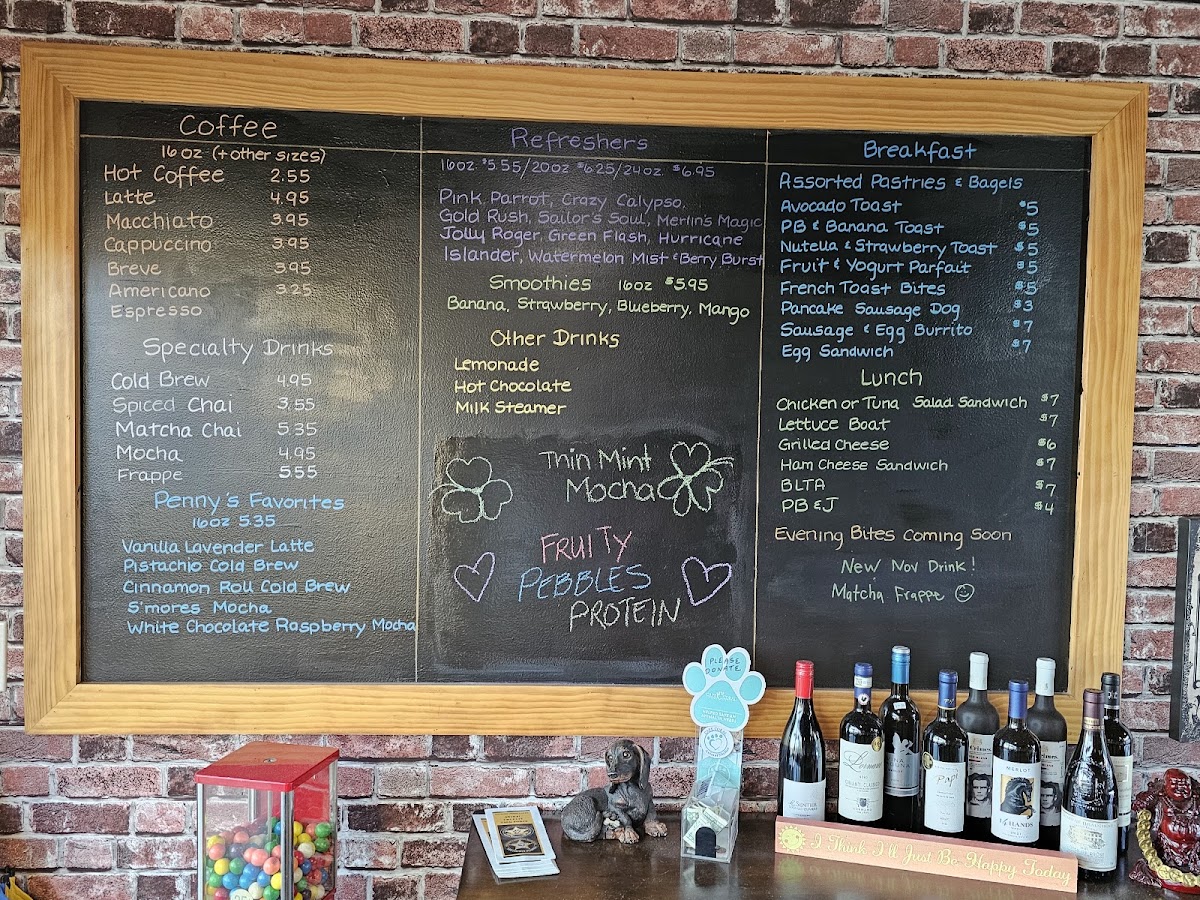 Coffee
16 oz (+ other sizes)
Hot Coffee 2.55
Latte 4.95
Macchiato 3.95
Cappuccino 3.95
Breve 3.95
Americano 3.25
Espresso
Specialty Drinks
Cold Brew 4.95
Spiced Chai 3.55
Matcha Chai 5.35
Mocha 4.95
Frappe 5.55
Penny's Favorites
16oz 5.35
Vanilla Lavender Latte
Pistachio Cold Brew
Cinnamon Roll Cold Brew
S'mores Mocha
White Chocolate Raspberry Mocha
Refreshers
16oz $5.55/20oz $6.25/24oz $6.95
Pink Parrot, Crazy Calypso,
Gold Rush, Sailor's Soul, Merlin's Magic
Jolly Roger, Green Flash, Hurricane
Islander, Watermelon Mist & Berry Burst
Smoothies 16oz $5.95
Banana, Strawberry, Blueberry, Mango
Other Drinks
Lemonade
Hot Chocolate
Milk Steamer
Thin Mint
Mocha
FRUITY
PEBBLES
PROTEIN
Breakfast
Assorted Pastries & Bagels
Avocado Toast $5
PB & Banana Toast $5
Nutella & Strawberry Toast $5
Fruit & Yogurt Parfait $5
French Toast Bites $5
Pancake Sausage Dog $3
Sausage & Egg Burrito $7
Egg Sandwich $7
Lunch
Chicken or Tuna Salad Sandwich $7
Lettuce Boat $7
Grilled Cheese $6
Ham Cheese Sandwich $7
BLTA $7
PB & J $4
Evening Bites Coming Soon
New Nov Drink!
Matcha Frappe
PLEASE
DONATE
MERLOT
14 HANDS
I Think I'll Just Be Happy Today